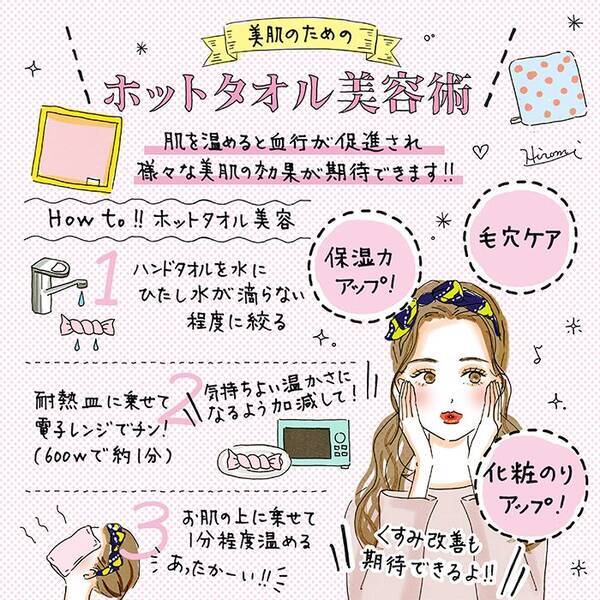 美肌のための
ホットタオル美容術
肌を温めると血行が促進され
様々な美肌の効果が期待できます!!
Hiromi
How to!! ホットタオル美容
保湿力
アップ!
毛穴ケア
1
ハンドタオルを水に
ひたし水が滴らない
程度に絞る
2
耐熱皿に乗せて
電子レンジでチン!
(600wで約1分)
気持ちよい温かさに
なるよう加減して!
化粧のり
アップ!
3
お肌の上に乗せて
1分程度温める
あったかーい!!
くすみ改善も
期待できるよ!!